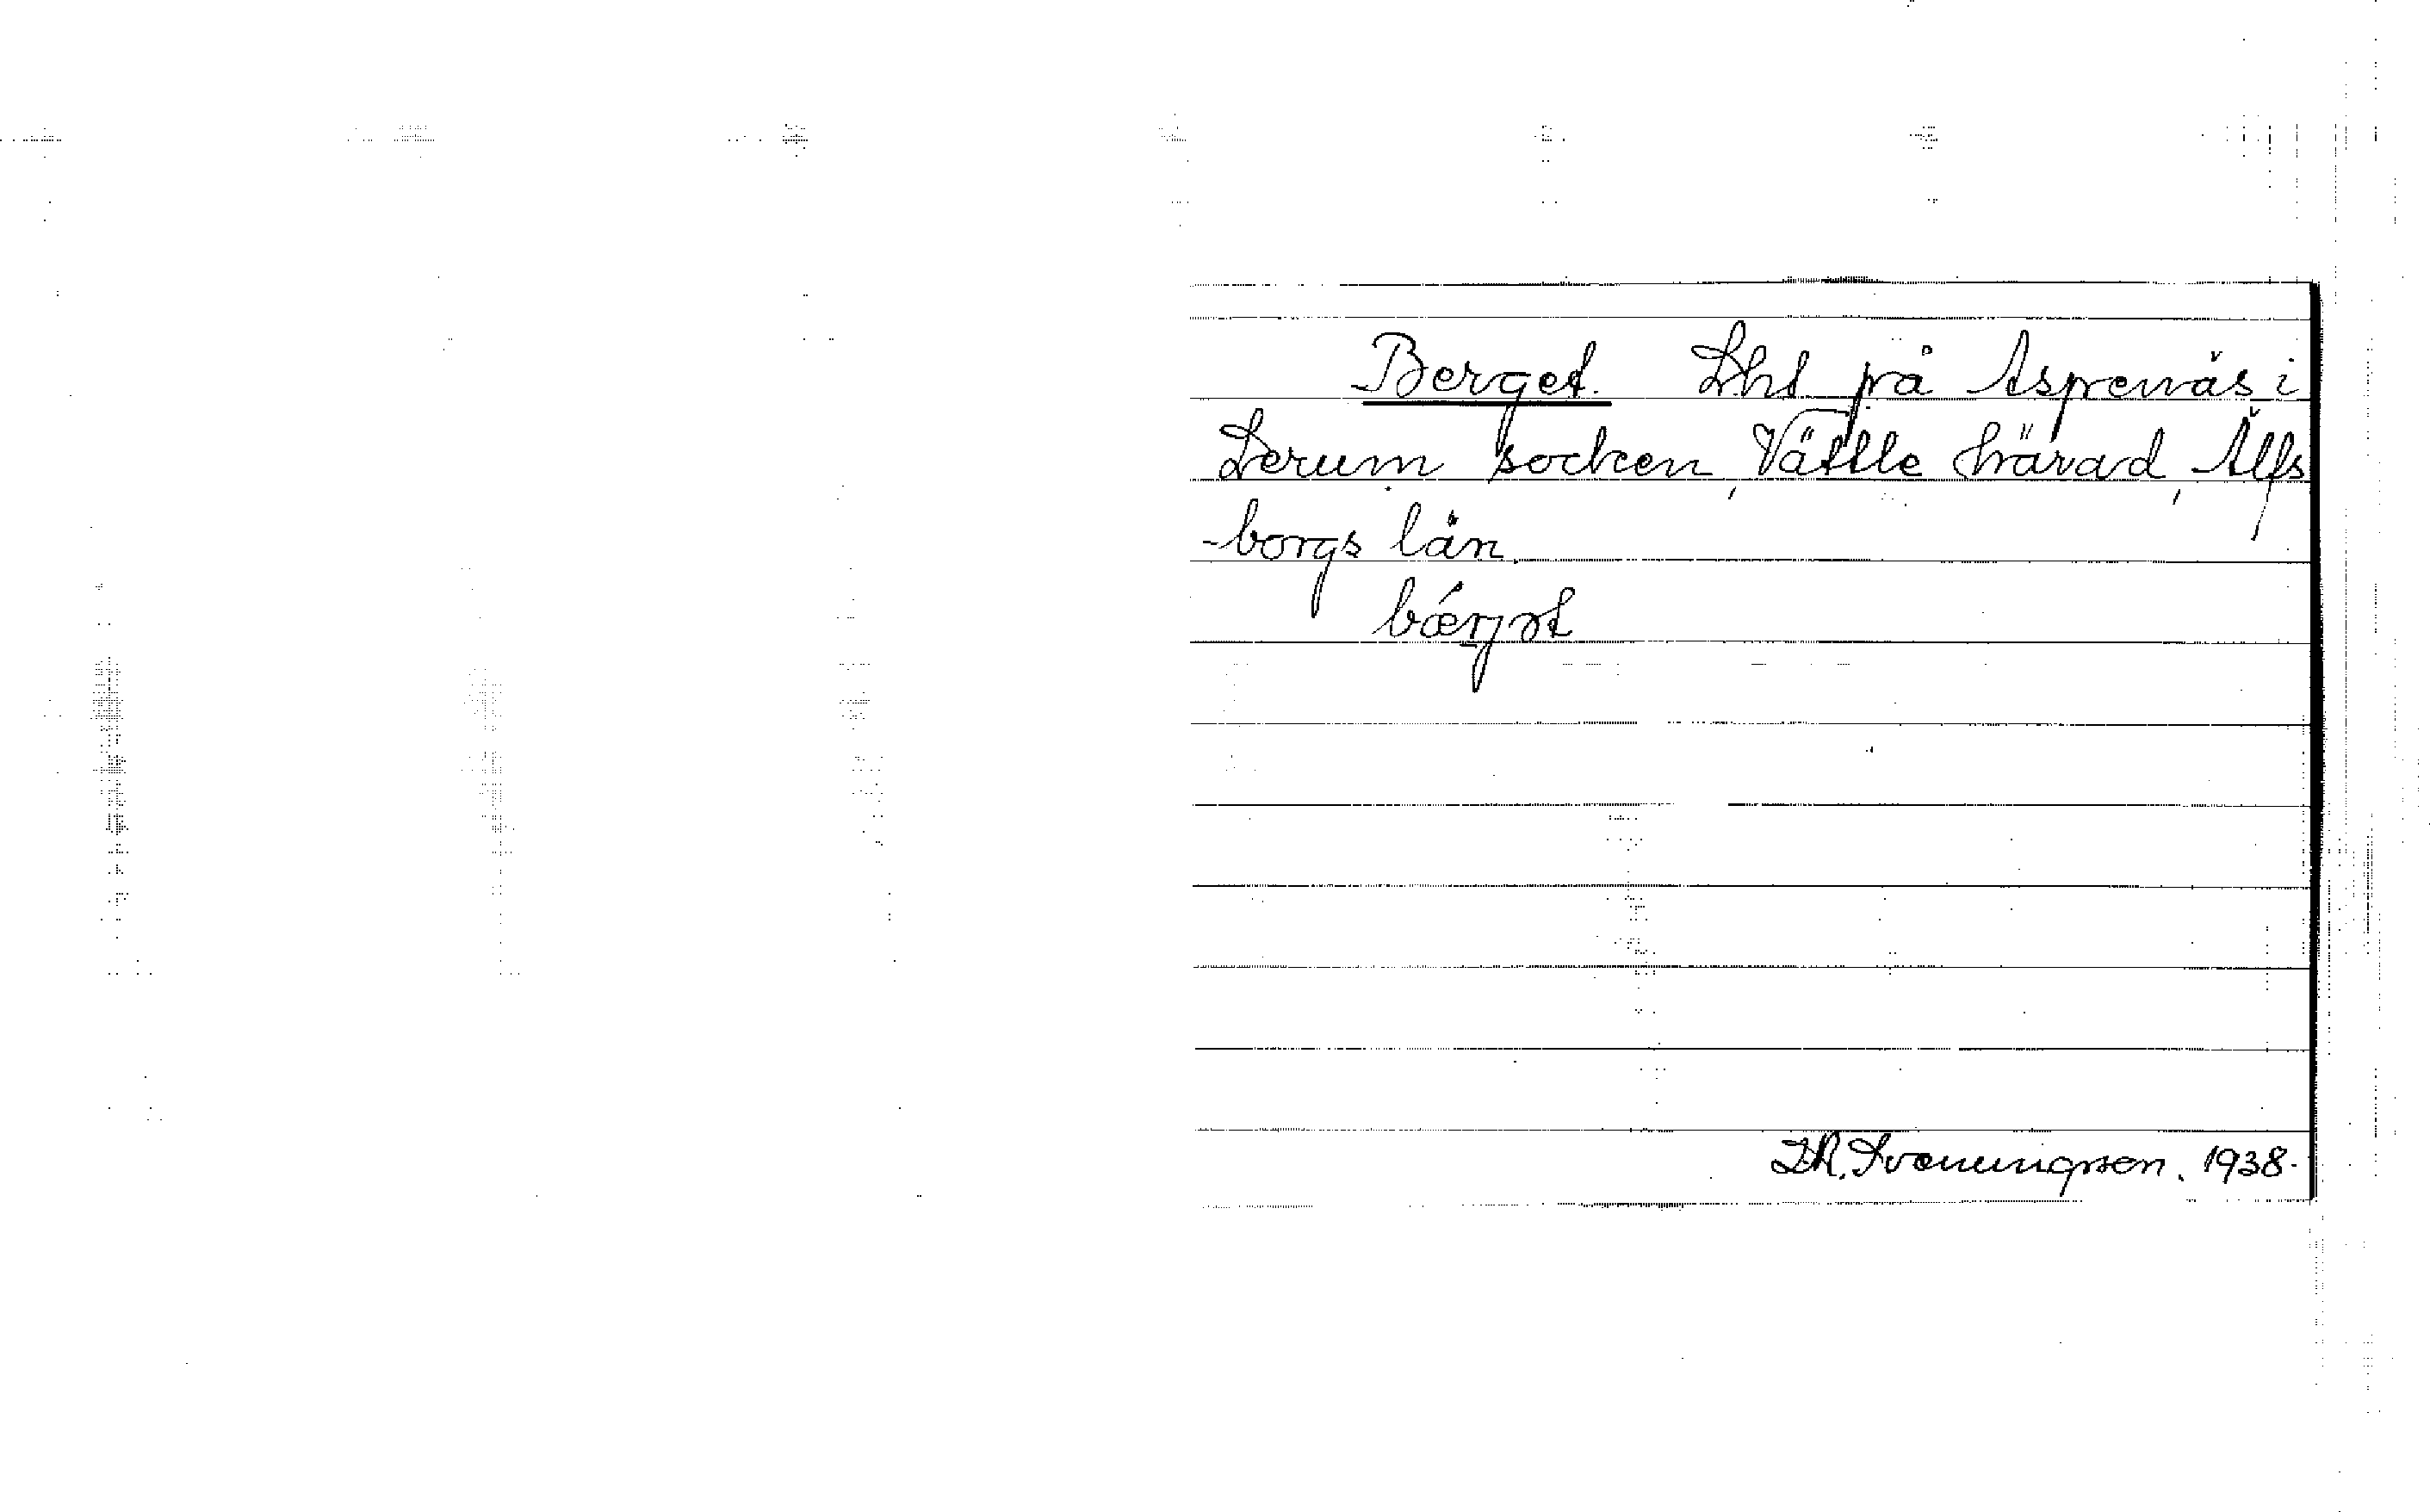 Berget. Lht på Aspenäs i
Lerum socken, Vättle härad, Älfs
-borgs län.
bǽrjət
Th. Svenningsson. 1938.